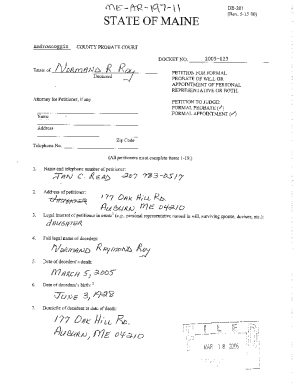 ME-AR-197-11
DE-201
STATE OF MAINE
Androscoggin COUNTY PROBATE COURT
DOCKET NO. 2005-023
Estate of NORMAND R Roy
Deceased
PETITION FOR FORMAL
PROBATE OF WILL OR
APPOINTMENT OF PERSONAL
REPRESENTATIVE OR BOTH
Attorney for Petitioner, if any
PETITION TO JUDGE:
FORMAL PROBATE (✓)
FORMAL APPOINTMENT (✓)
Name
Address
Zip Code
Telephone No.
(All petitioners must complete items 1-19.)
1. Name and telephone number of petitioner:
JAN C. READ 207 783-0517
2. Address of petitioner:
177 OAK Hill Rd.
AUBURN, ME 04210
3. Legal interest of petitioner in estate (e.g., personal representative named in will, surviving spouse, devisee, etc.):
DAUGHTER
4. Full legal name of decedent:
NORMAND RAYMOND Roy
5. Date of decedent's death:
MARCH 5, 2005
6. Date of decedent's birth:
JUNE 3, 1928
7. Domicile of decedent at date of death:
177 OAK Hill Rd.
AUBURN, ME 04210
FILE
MAR 18 2005